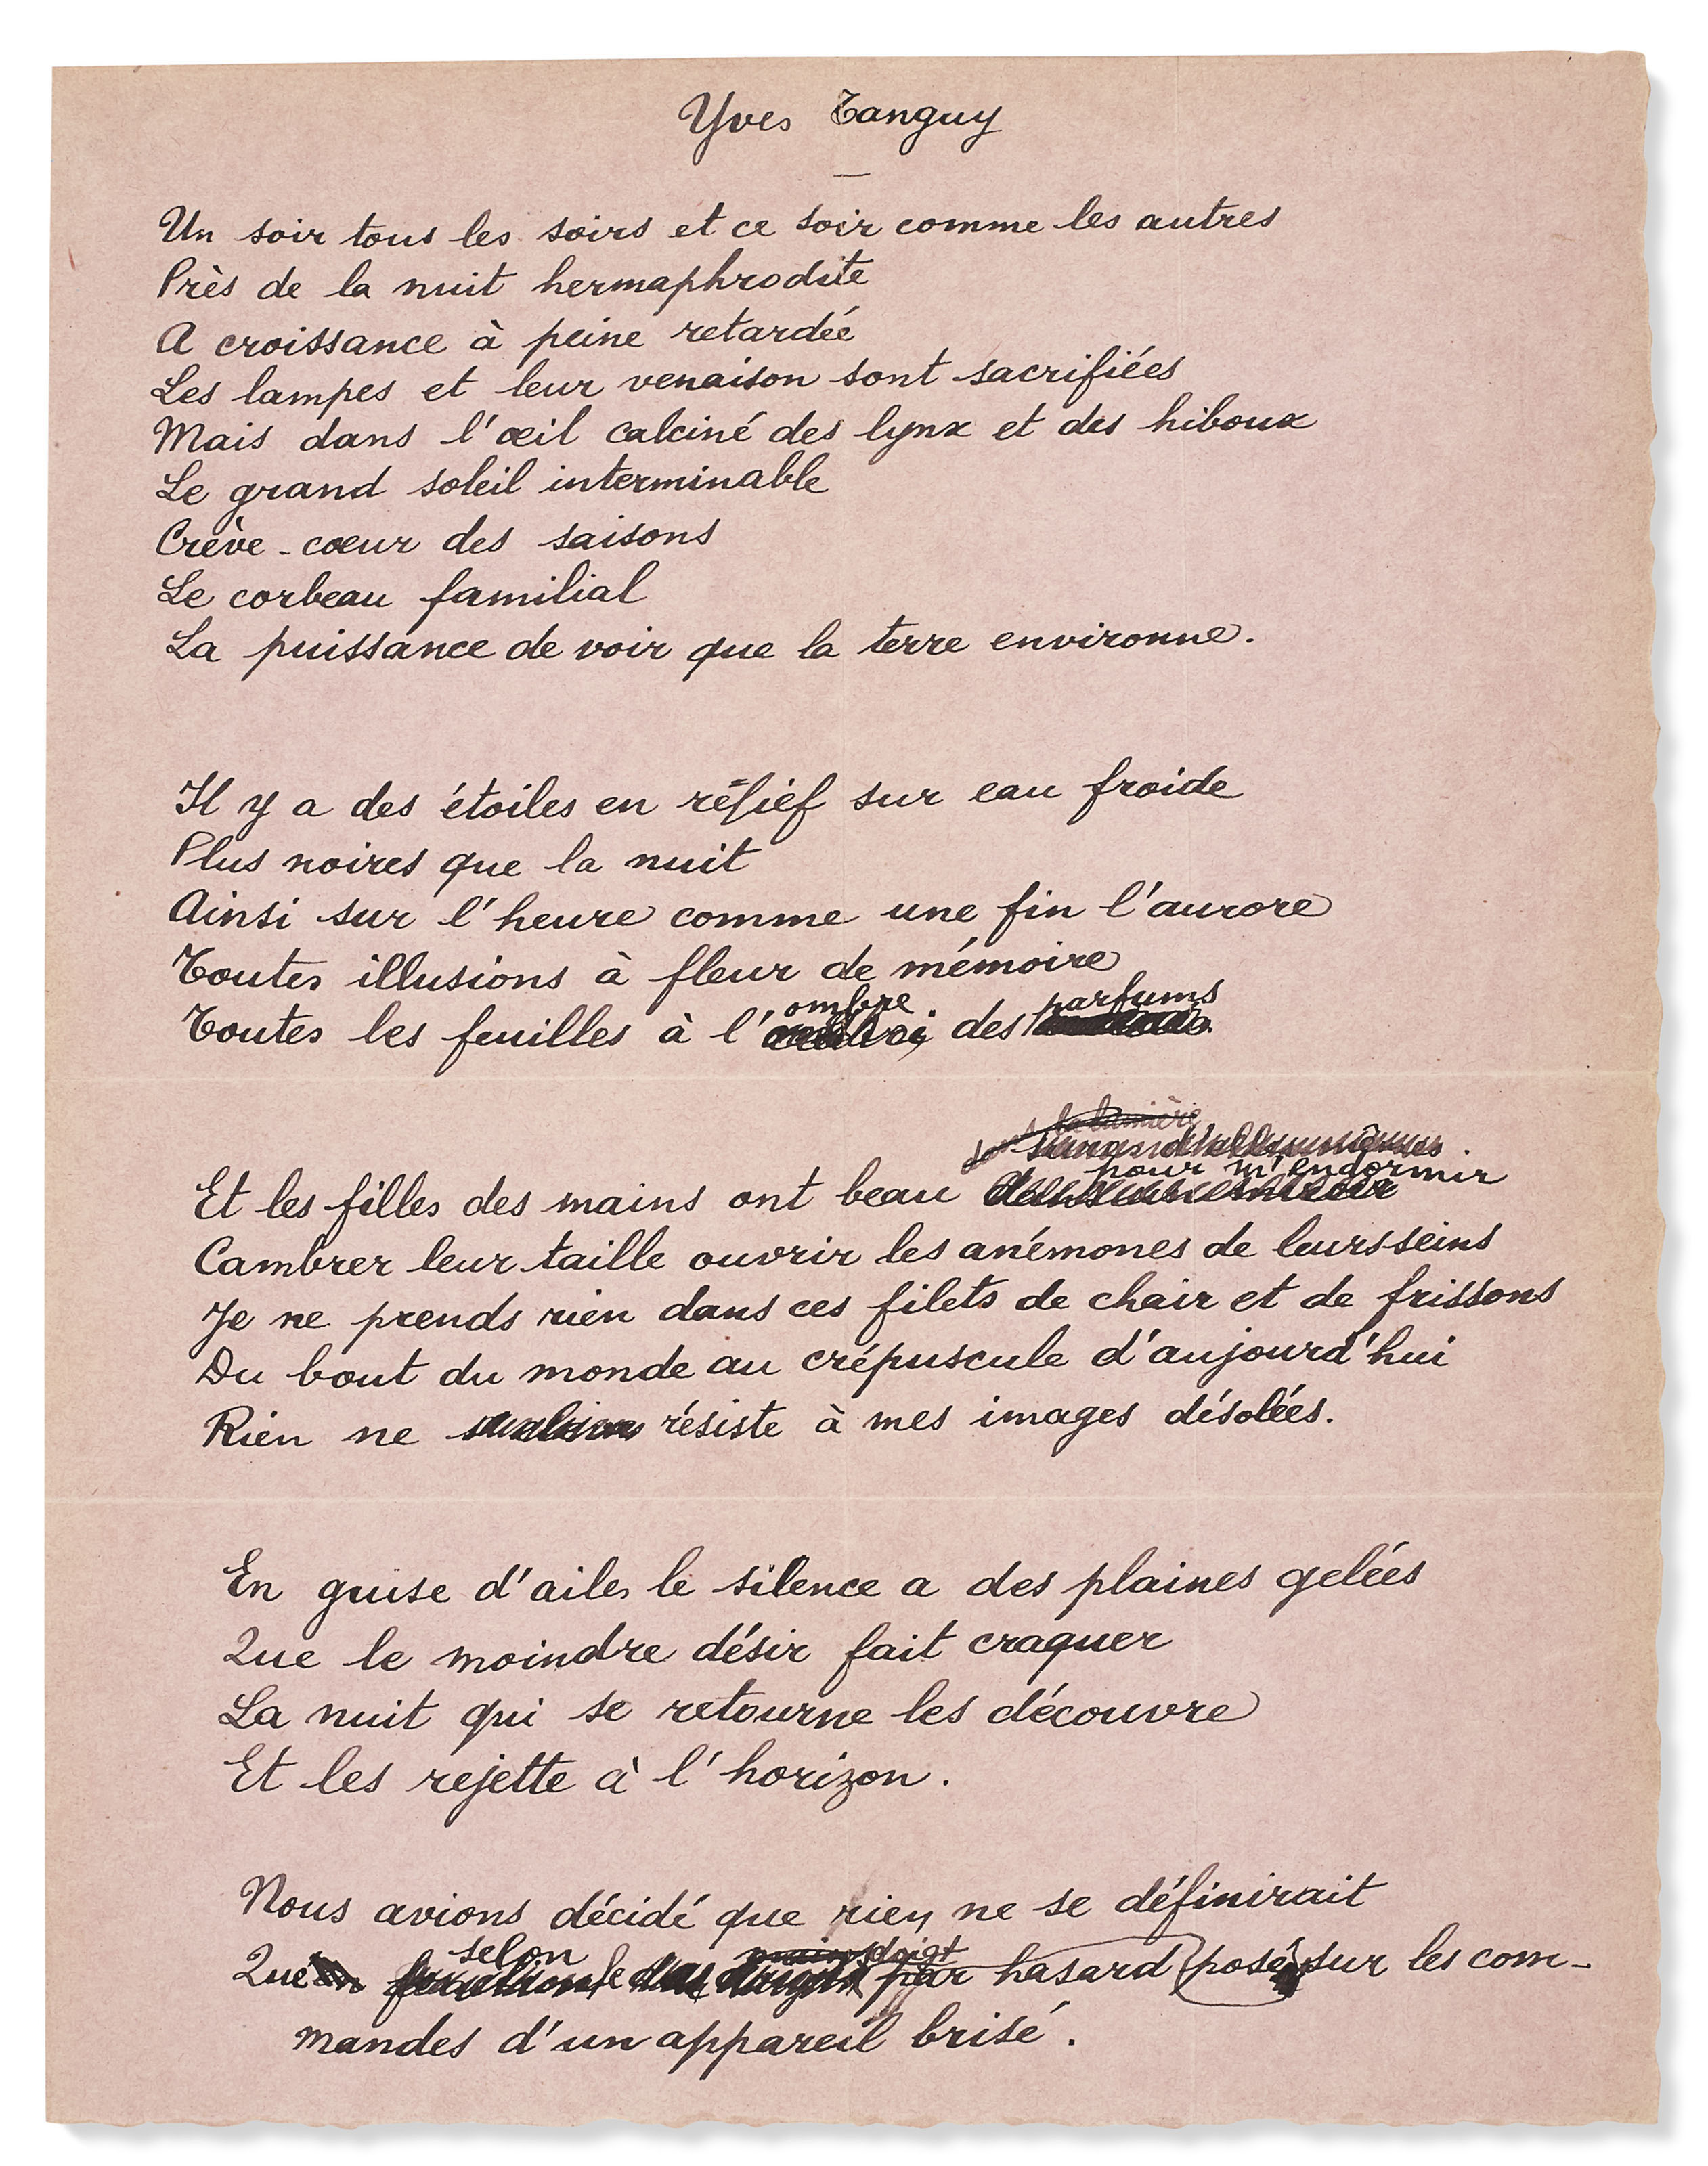 Yves Tanguy
Un soir tous les soirs et ce soir comme les autres
Près de la nuit hermaphrodite
A croissance à peine retardée
Les lampes et leur venaison sont sacrifiées
Mais dans l'œil calciné des lynx et des hiboux
Le grand soleil interminable
Crève-cœur des saisons
Le corbeau familial
La puissance de voir que la terre environne.
Il y a des étoiles en rélief sur eau froide
Plus noires que la nuit
Ainsi sur l'heure comme une fin l'aurore
Toutes illusions à fleur de mémoire
ombre parfums
Toutes les feuilles à l' des
la lumière
pour m'endormir
Et les filles des mains ont beau
Cambrer leur taille ouvrir les anémones de leurs seins
Je ne prends rien dans ces filets de chair et de frissons
Du bout du monde au crépuscule d'aujourd'hui
Rien ne résiste à mes images désolées.
En guise d'ailes le silence a des plaines gelées
Que le moindre désir fait craquer
La nuit qui se retourne les découvre
Et les rejette à l'horizon.
Nous avions décidé que rien ne se définirait
selon doigt
Que le par hasard posé sur les com-
mandes d'un appareil brisé.